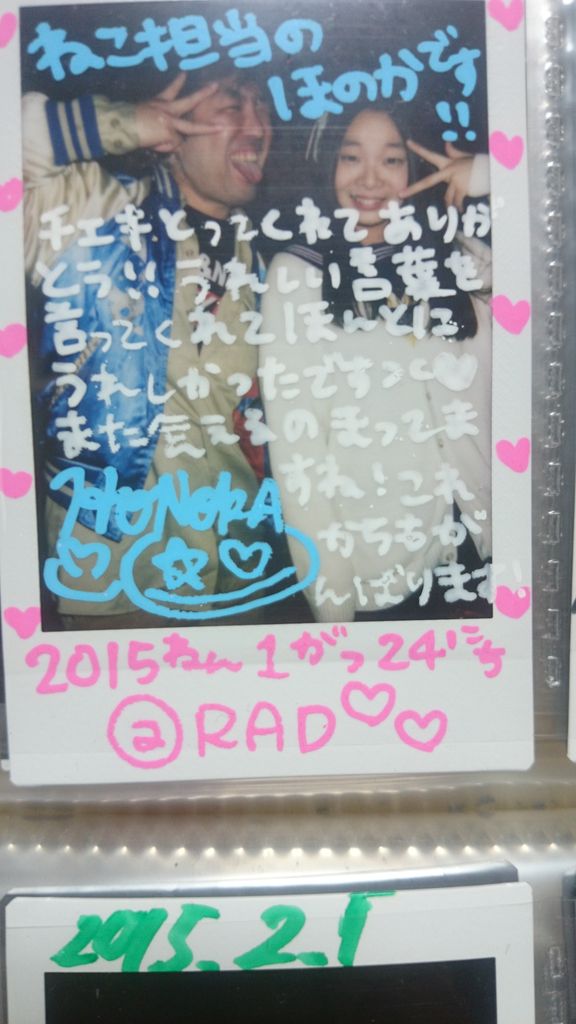 ねこ担当の
ほのかです!!
チェキとってくれてありが
とう!! うれしい言葉を
言ってくれてほんとに
うれしかったです♡
また会えるのまってま
すね!これ
からもが
んばります!
HONOKA
2015ねん1がつ24にち
@RAD♡♡
2015.2.1